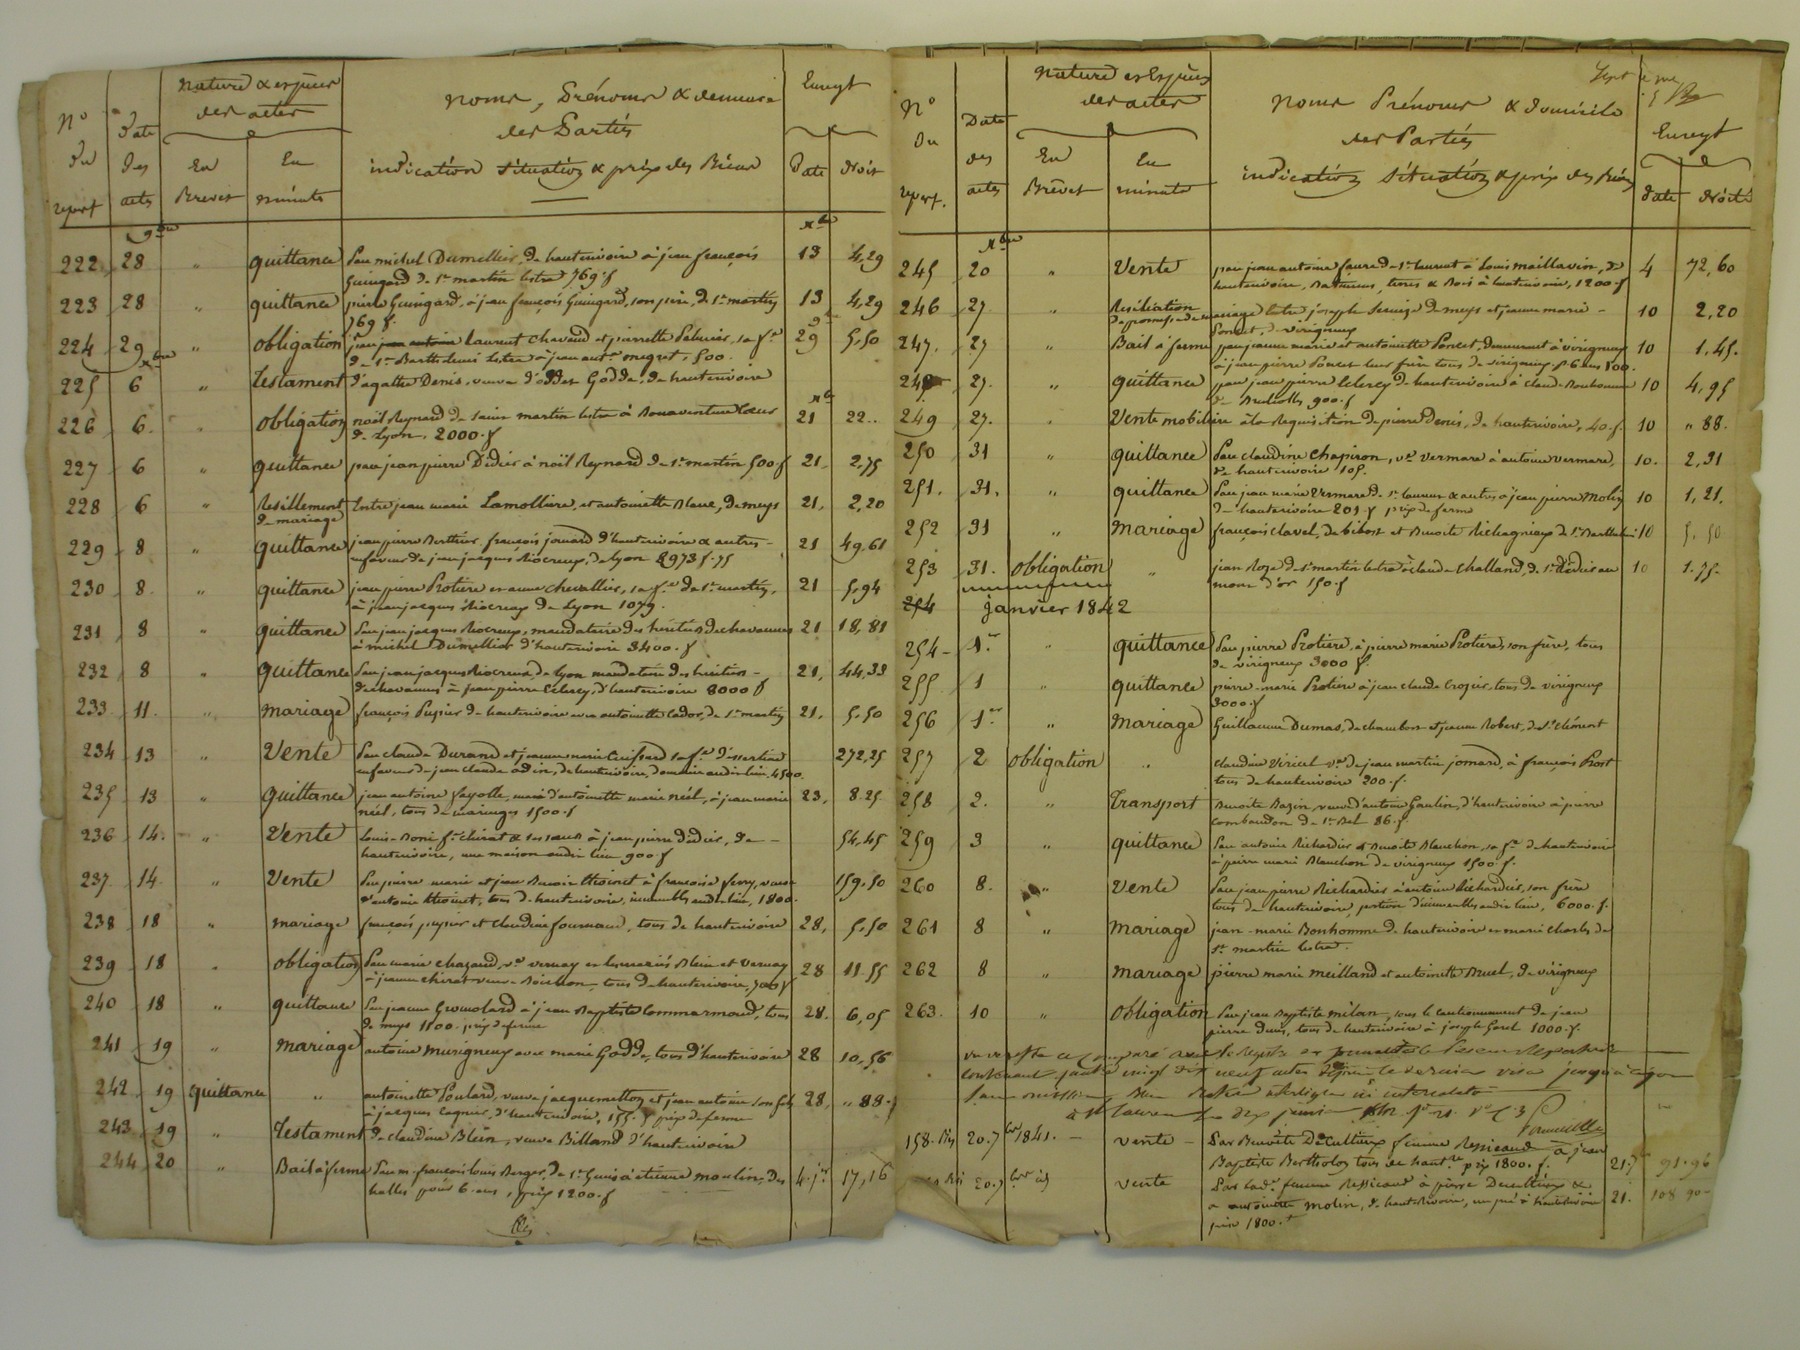 N° du repert
Date des actes
nature & espèces des actes
En Brevet
En minute
noms, Prénoms & demeure
des Parties
indication situation & prix des Biens
Enregt
Date
droit
9bre
Xbre
222 28 " quittance Par michel Dumellier, de hauterivoire à jean françois 13 4,29
Guingard de st martin lestra 769 f
223 28 " quittance pierre Guingard, à jean françois Guingard, son père, de st martin 13 4,29
769 f.
9bre
224 29 " obligation laurent Chavand et pierrette Palmier, sa fe 29 5,50
de st Barthelemi lestra à jean ante megret, 500.
Xbre
225 6 " Testament d'agathe Denis, veuve d'oddet Godde, de hauterivoire
Xbre
226 6. " obligation noël Reynard de saint martin lestra à Bonaventure Coeur 21 22..
de Lyon, 2000 f
227 6 " quittance par jean pierre Didier à noël Reynard de st martin 500 f 21. 2,75
228 6 " Resillement Entre jean marie Lamollière, et antoinette Blanc, de meys 21, 2,20
de mariage
229 8 " quittance jean pierre Berthier, françois jomard d'hauterivoire & autres 21 49,61
en faveur de jean jacques Riocreux, de lyon 8973 f. 75
230 8. " quittance jean pierre Protière et anne Chevallier, sa fe de st martin, 21 5,94
à jean jacques Riocreux de Lyon 1079.
231 8 " quittance Par jean jacques Riocreux, mandataire des héritiers dechavannes 21 18,81
à michel Dumellier d'hauterivoire 3400. f
232 8 " quittance Par jean jacques Riocreux, de lyon mandataire des héritiers 21, 44,33
dechavannes à jean pierre Clerey, d'hauterivoire 8000 f
233. 11. " mariage françois Pupier de hauterivoire avec antoinette Cador, de st martin 21. 5,50
234 13 " Vente Par claude Durand et jeanne marie sa fe d'essertines 272,25
en faveur de jean claude odin, de hauterivoire, domaine audit lieu. 4500.
235 13 " quittance jean antoine fayolle, mari d'antoinette marie néel, à jean marie 23, 8.25
néel, tous de maringes 1500. f
236 14. " Vente Louis Boni fs chirat & ses soeurs à jean pierre didier, de 54,45
hauterivoire, une maison audit lieu 900. f
237. 14 " Vente Par pierre marie et jean Thoinet à françoise ferry, veuve 159.50
d'antoine thoinet, tous de hauterivoire, immeubles audit lieu, 1800.
238 18 " mariage françois pupier et claudine fournand, tous de hauterivoire 28, 5,50
239 18 " obligation Par marie chazaud, ve vernay et les mariés Blein et Vernay 28 11.55
à jeanne chirat veuve Boisson, tous de hauterivoire, 700 f
240 18 " quittance Par jeanne Gromolard à jean Baptiste Commarmond, tous 28. 6,05
de meys 1100. prix de ferme
241 19 " mariage antoine murigneux avec marie Godde, tous d'hauterivoire 28 10,56
242. 19 quittance " antoinette Poulard, veuve jacquemetton et jean antoine son fils 28, " 88.
à jacques Cagnier, d'hauterivoire, 155. f prix de ferme
243. 19 " Testament de claudine Blein, veuve Billand d'hauterivoire
244 20 " Bail à ferme Par m. françois louis Berger, de st Genis à etienne moulin, des 4. jer 17,16
halles pour 6 ans, prix 1200. f
N° du repert.
Date des actes
nature et Espèces des actes
En Brevet
En minute
noms Prénoms & domicile
des Parties
indication situation & prix des biens
Enregt
date
droits
Xbre
245 20 " Vente par jean antoine faure de st laurent à Louis maillavin, de 4 72,60
hauterivoire, Batiments, terres & Bois à hauterivoire, 1200. f
246 27. " Resiliation joseph et jeanne marie 10 2,20
de promesse de mariage
Poncet, de virigneux
247. 27 " Bail à ferme par jeanne marie et antoinette Poncet, demeurant à virigneux 10 1,45.
à jean pierre Poncet leur frère tous de virigneux p. 6 ans 100.
248 27. " quittance par jean pierre Clerey de hauterivoire à claude Bonhomme 10 4,95
de Brullioles 900. f
249 27. " Vente mobilière à la Requisition de pierre Denis, de hauterivoire, 40. f. 10 " 88.
250 31 " quittance Par claudine Chapiron, ve Vermare à antoine vermare, 10. 2,31
de hauterivoire 105.
251. 31. " quittance Par jean marie Vermare de st laurent & autres à jean pierre Molin 10 1,21.
de hauterivoire 201 f prix de ferme
252 31 " mariage françois clavel, de bibost et Benoite Richagneux de st Barthelemi 10 5,50
253 31. obligation " jean Roze de st martin lestra à claude Challand, de st Didier au 10 1.75.
mont d'or 150. f
254 janvier 1842
254 1er " quittance Par pierre Protière, à pierre marie Protière, son frère, tous
de virigneux 3000 f.
255 1 " quittance pierre-marie Protière à jean claude Crozier, tous de virigneux
3000. f
256 1er " mariage Guillaume Dumas, de chambost et jeanne Robert, de st clément
257 2 obligation " claudine Viricel ve de jean martin jomard, à françois Prost
tous de hauterivoire 200. f.
258 2. " Transport Benoite Bazin, veuve d'antoine Goulin, d'hauterivoire à pierre
combaudon de st Bel 86. f.
259 3 " quittance Par antoine Richardier et Benoite Blanchon, sa fe de hauterivoire
à pierre marie Blanchon de virigneux 1500 f.
260 8. " Vente Par jean pierre Richardier à antoine Richardier, son frère
tous de hauterivoire, portion d'immeubles audit lieu, 6000. f.
261 8 " mariage jean-marie Bonhomme de hauterivoire et marie charles de
st martin lestra.
262 8 " mariage pierre marie meilland et antoinette Bruel, de virigneux
263. 10 " obligation Par jean Baptiste milan, sous le cautionnement de jean
pierre denis, tous de hauterivoire à joseph Gorel 1000. f.
contenant neuf actes depuis le dernier visa jusqu'à ce jour
sans omission
à st laurent le dix
158. Bis 20. 7bre 1841. vente Par Benoite Decultieux femme Ressicaud à jean
Baptiste Bertholon tous de hautre prix 1800. f. 21. 91.96
Bis 20. 7bre id vente Par lade femme Ressicaud à pierre Decultieux &
à antoinette molin, de hauterivoire, un pré à hauterivoire 21. 108 90
prix 1800. f